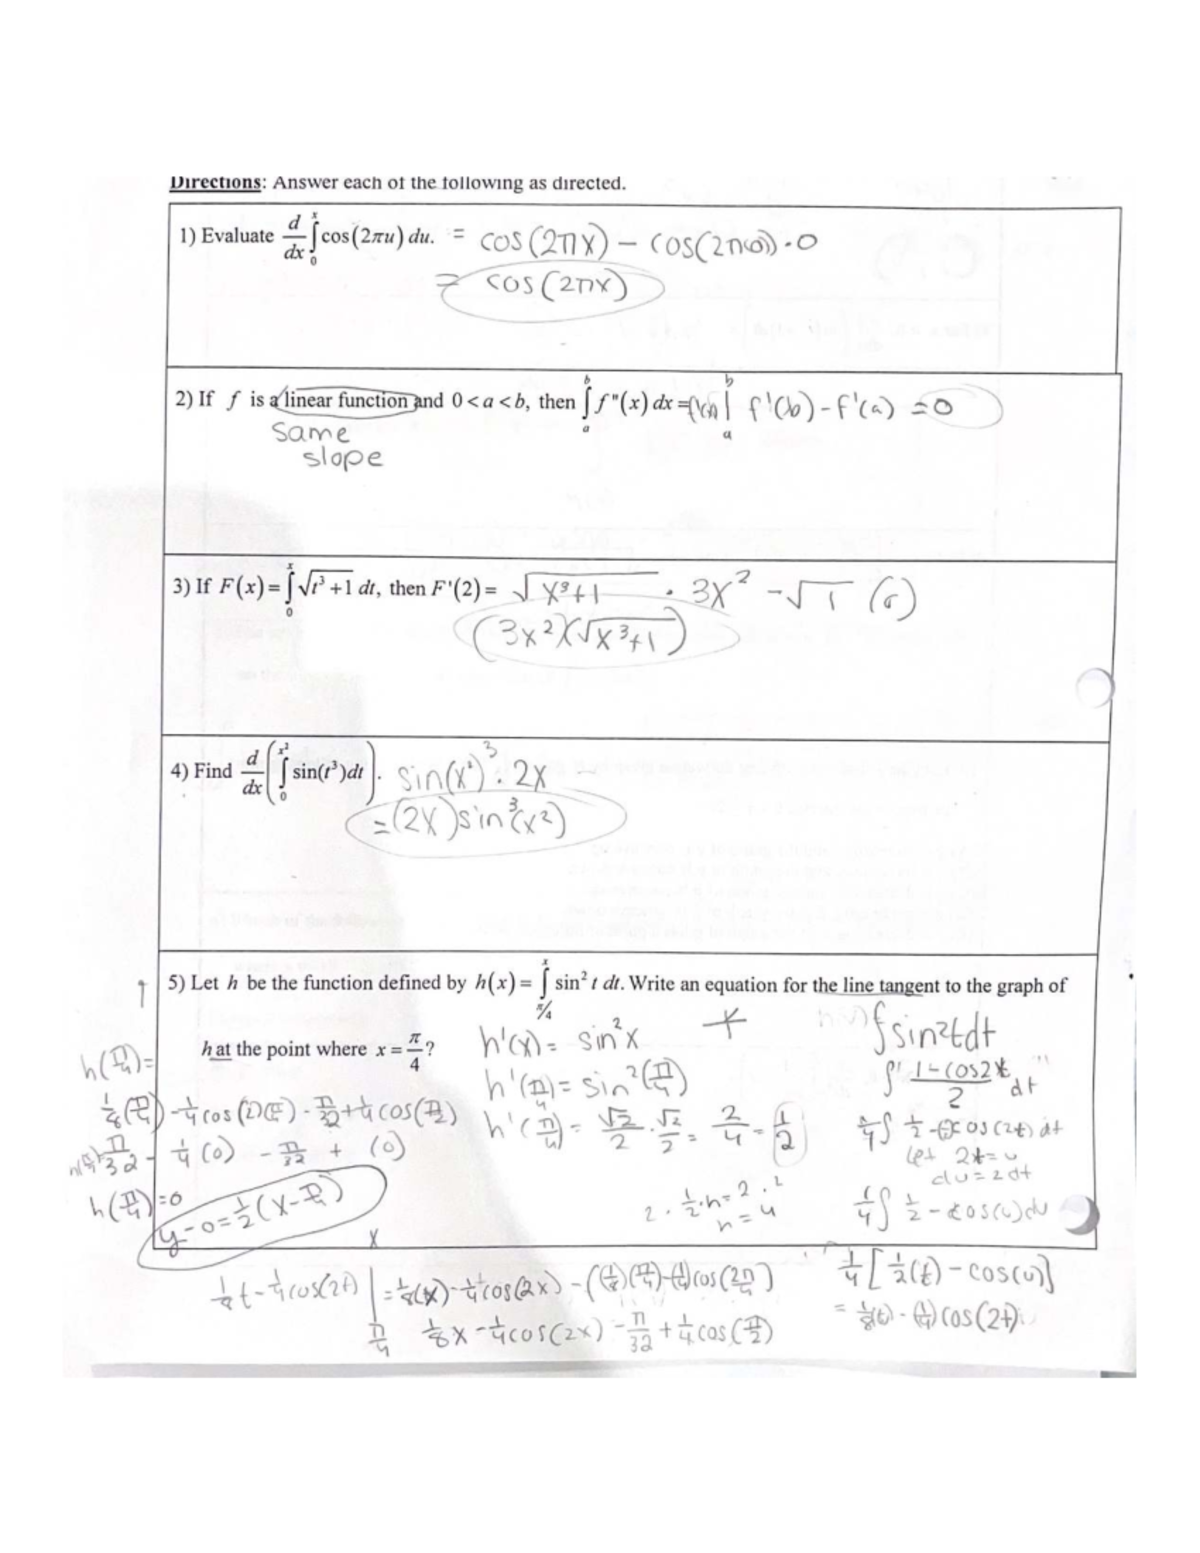 Directions: Answer each of the following as directed.
1) Evaluate d/dx ∫₀ˣ cos(2πu) du. = cos(2πx) – cos(2π(0))·0
= cos(2πx)
2) If f is a linear function and 0 < a < b, then ∫ₐᵇ f"(x) dx = f'(x) |ₐᵇ f'(b) – f'(a) = 0
same
slope
3) If F(x) = ∫₀ˣ √(t³+1) dt, then F'(2) = √(x³+1) · 3x² – √1 (0)
(3x²)(√(x³+1))
4) Find d/dx (∫₀^(x²) sin(t³)dt). sin(x²)³ · 2x –
= (2x)sin³(x²)
5) Let h be the function defined by h(x) = ∫_(π/4)^x sin² t dt. Write an equation for the line tangent to the graph of
h at the point where x = π/4?
h'(x) = sin²x
h'(π/4) = sin²(π/4)
h'(π/4) = √2/2 · √2/2 = 2/4 = 1/2
2 · 1/2 · n = 2 · 2
n = 4
∫sin²t dt
∫ 1-cos2t/2 dt
let 2t = u
du = 2dt
1/4 ∫ 1/2 – cos(u) du
1/4 [1/2(t) – cos(u)]
= 1/8(t) – (1/4)cos(2t)
h(π/4) =
1/8(π/4) – 1/4 cos(2)(π/4) – π/32 + 1/4 cos(π/2)
h(π/4) = π/32 – 1/4 (0) – π/32 + (0)
h(π/4) = 0
y – 0 = 1/2 (x – π/4)
1/8 t – 1/4 cos(2t) |_(π/4)^x = 1/8(x) – 1/4 cos(2x) – ((1/8)(π/4) – (1/4)cos(2π/4)
1/8 x – 1/4 cos(2x) – π/32 + 1/4 cos(π/2)